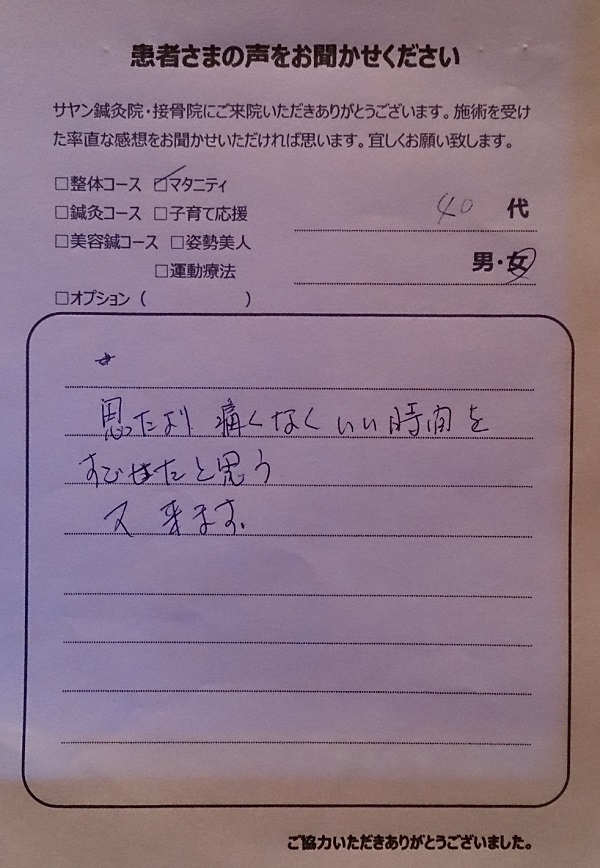 患者さまの声をお聞かせください
サヤン鍼灸院・接骨院にご来院いただきありがとうございます。施術を受け
た率直な感想をお聞かせいただければ思います。宜しくお願い致します。
□整体コース ☑マタニティ
□鍼灸コース □子育て応援
□美容鍼コース □姿勢美人
□運動療法
□オプション（ ）
40 代
男・女
思ったより 痛くなく いい時間を
すごせたと思う
又 来ます。
ご協力いただきありがとうございました。